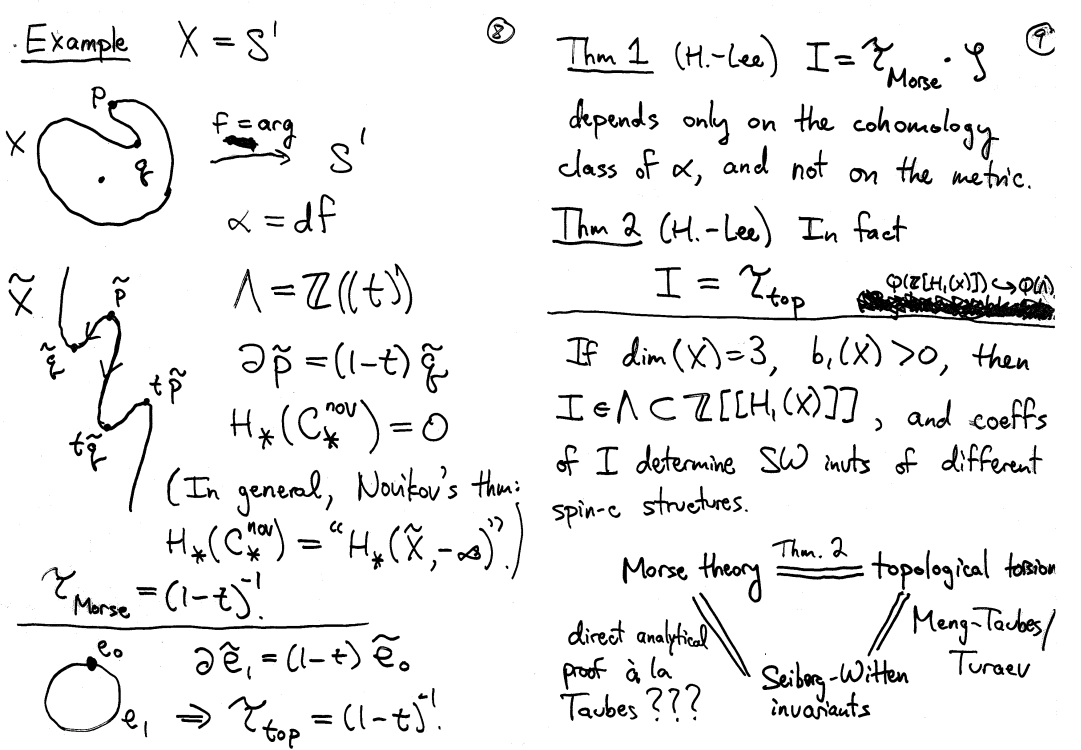 ⑧
. Example X = S¹
p
X
q
f = arg
S¹
α = df
X̃
p̃
q̃
t p̃
t q̃
Λ = ℤ((t))
∂p̃ = (1-t) q̃
H_*(C_*^nov) = 0
(In general, Novikov's thm:
H_*(C_*^nov) = "H_*(X̃, -∞)".)
τ_Morse = (1-t)^-1.
e₀
e₁
∂ẽ₁ = (1-t) ẽ₀
⇒ τ_top = (1-t)^-1.
⑨
Thm 1 (H.-Lee) I = τ_Morse · ζ
depends only on the cohomology
class of α, and not on the metric.
Thm 2 (H.-Lee) In fact
I = τ_top Q(ℤ[H₁(X)]) ↪ Q(Λ)
If dim(X)=3, b₁(X) >0, then
I ∈ Λ ⊂ ℤ[[H₁(X)]], and coeffs
of I determine SW invts of different
spin-c structures.
Thm. 2
Morse theory topological torsion
direct analytical
proof à la
Taubes ???
Meng-Taubes/
Turaev
Seiberg-Witten
invariants